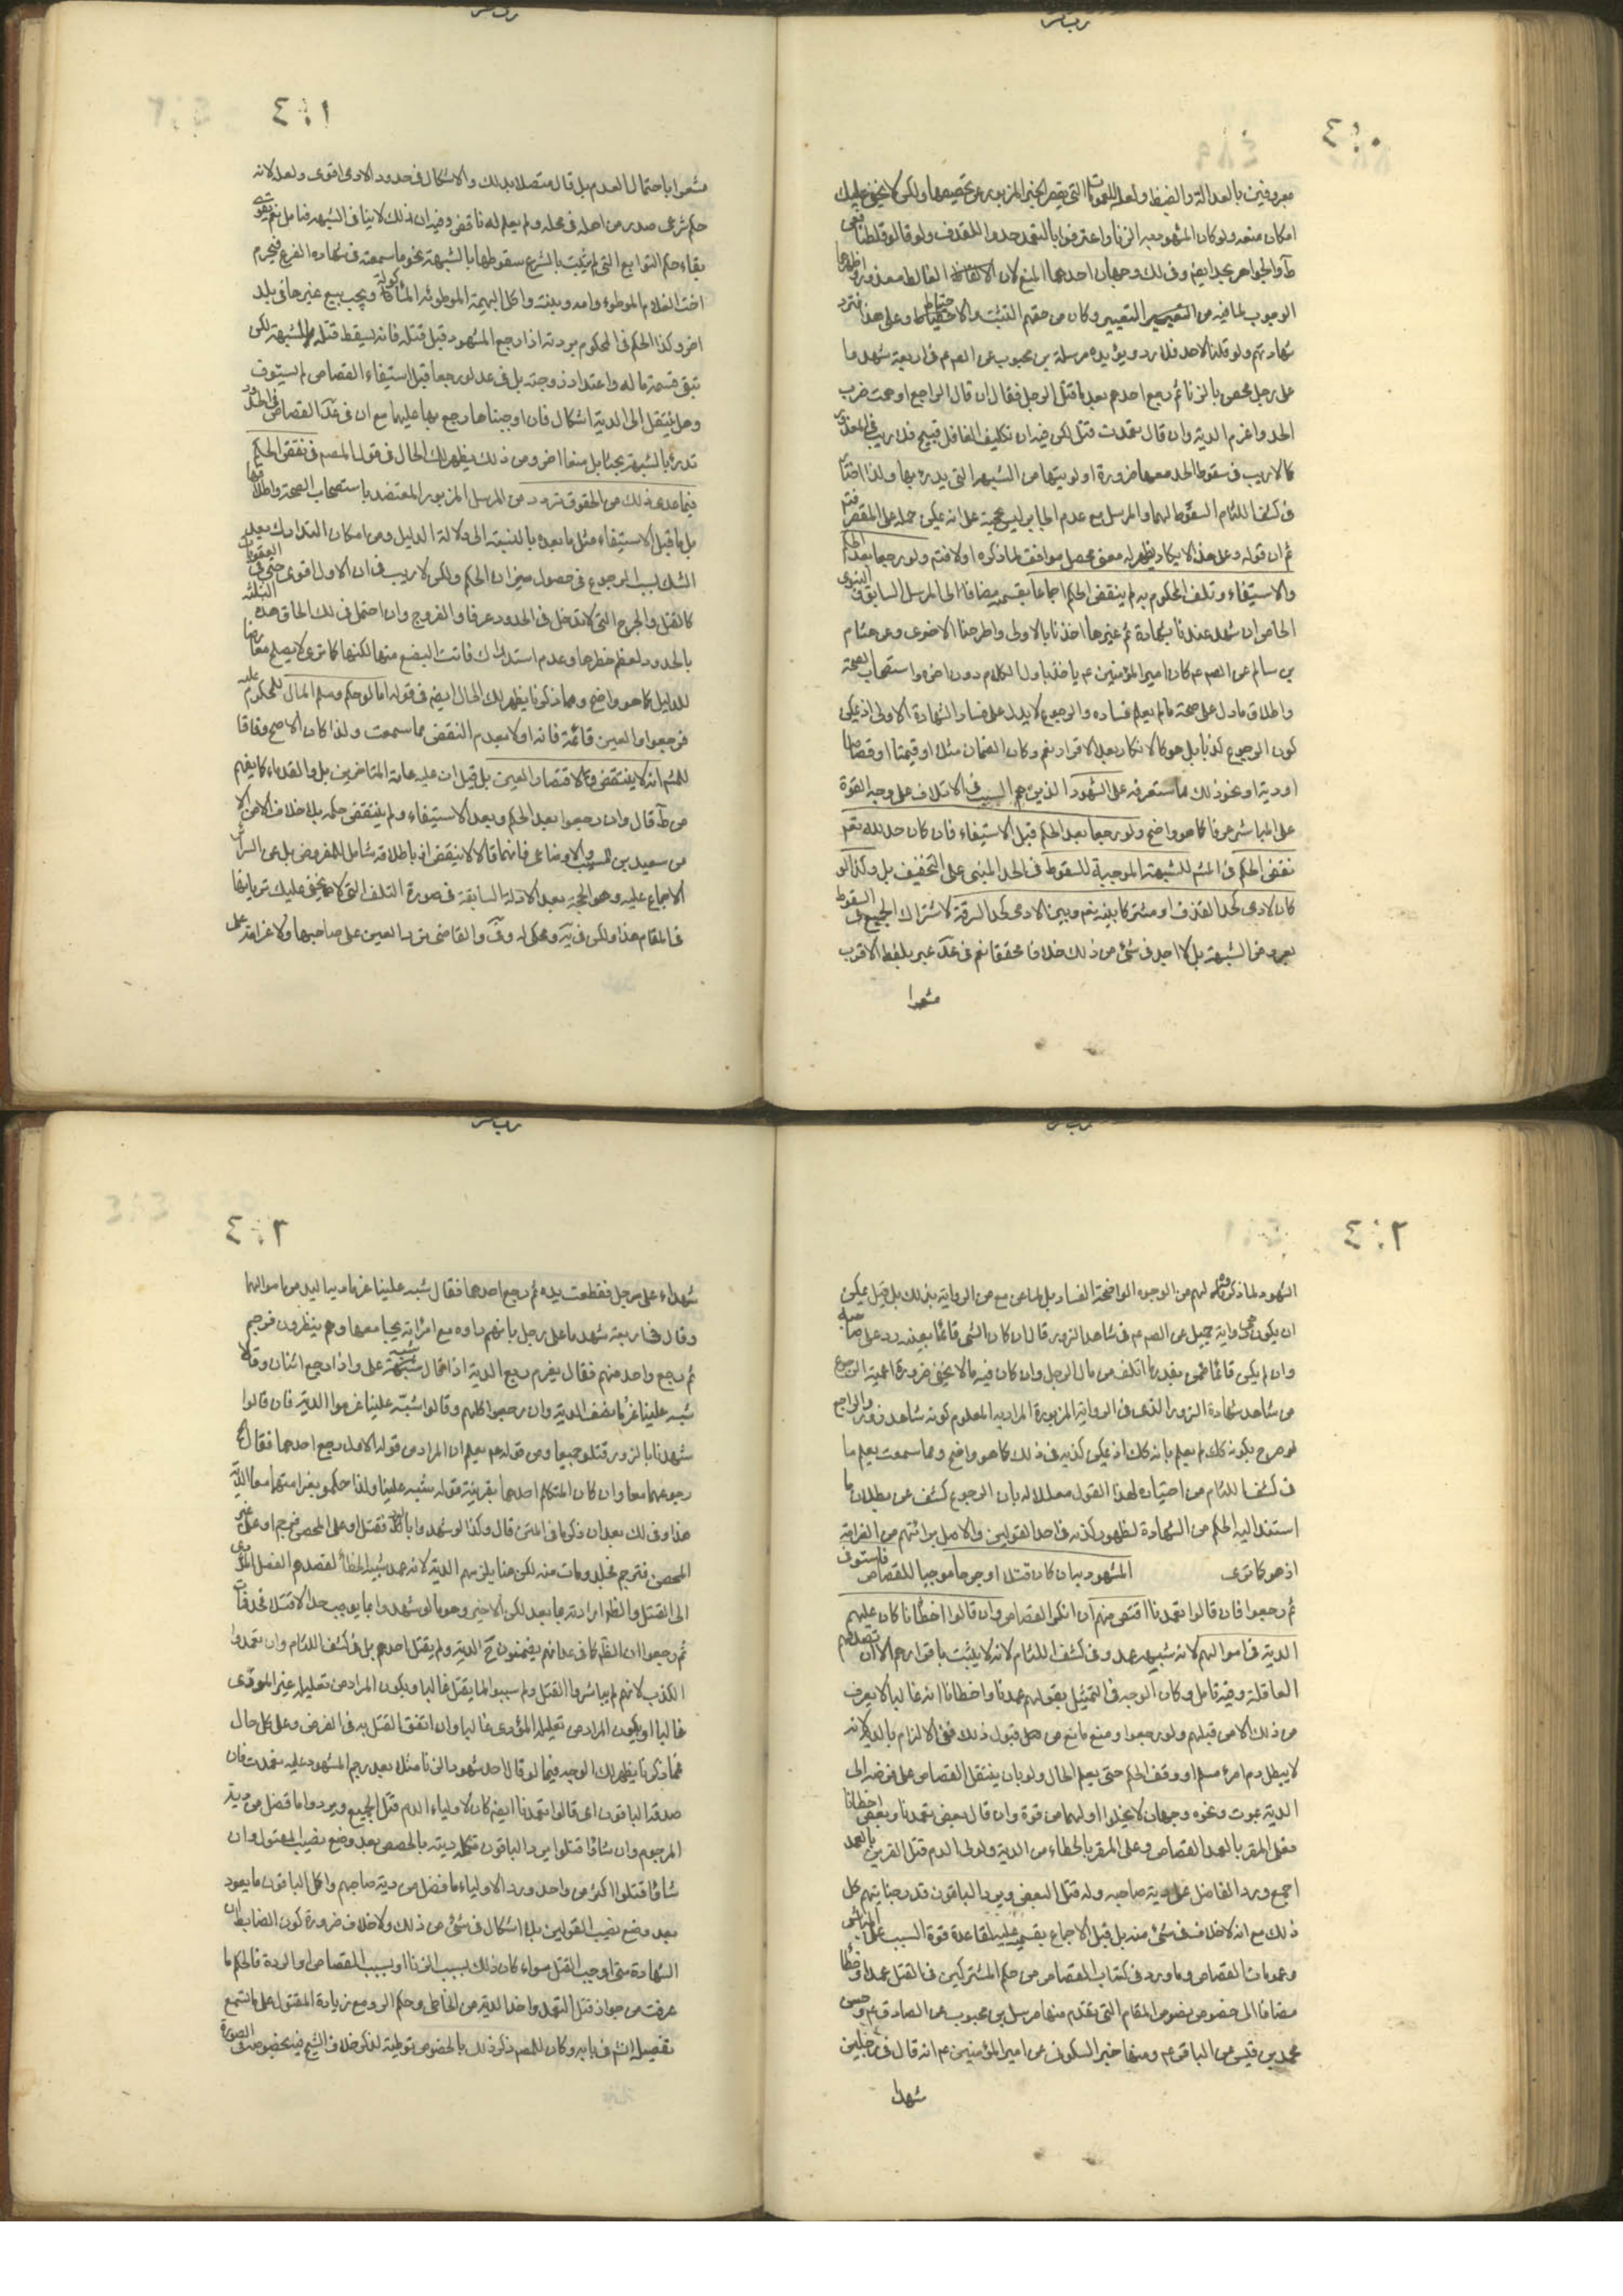 ٤٠٠
معروفين بالعدالة والضبط ولعله للعمومات التى يقصر الخبر المزبور عن تخصيصها ولكن لا يخفى عليك
امكان منعه ولو كان المشهود به الزنا واعترفوا بالتعمد حدوا للقذف ولو قالوا غلطنا فعن
ط والجواهر يحد ايضا وفى ذلك وجهان احدهما المنع لان الغالط معذور واظهرهما
الوجوب لما فيه من التعيير وكان من حقهم التثبت والاحتياط وعلى هذا فترد
شهادتهم ولو قلنا لاحد فلا رد ويؤيده مرسلة بن محبوب عن الصم م فى اربعة شهدوا
على رجل محصن بالزنا ثم رجع احدهم بعد ما قتل الرجل فقال ان قال الراجع اوهمت ضرب
الحد واغرم الدية وان قال تعمدت قتل لكن فيه ان تكليف الغافل قبيح فلا ريب فى العذر
كما لا ريب فى سقوط الحد معها ضرورة اولويتها من الشبهة التى يدرء بها ولذا اختار
فى كشف اللثام السقوط لهما والمرسل مع عدم الجابر ليس بحجة على انه يمكن حمله على المقصر
ثم ان قوله وعلى هذا لا يكاد يظهر له معنى محصل موافق لما ذكره اولا فتم ولو رجعا بعد الحكم
والاستيفاء وتلف المحكوم به لم ينقض الحكم اجماعا بقسميه مضافا الى المرسل السابق و النبوى
الخاص ان شهد عندنا بشهادة ثم غيرها اخذنا بالاولى واطرحنا الاخرى وعن هشام
بن سالم عن الصم م كان امير المؤمنين م ياخذ باول الكلام دون اخره واستصحاب الصحة
واطلاق ما دل على صحة ما لم يعلم فساده والرجوع لا يدل على فساد الشهادة الاولى اذ يمكن
كون الرجوع كذبا بل هو كالانكار بعد الاقرار نعم وكان الضمان مثلا او قيمتا او قصاصا
او دية او نحو ذلك مما ستعرفه على الشهود الذين هم السبب فى الاتلاف على وجه القوة
على المباشر عرفا كما هو واضح ولو رجعا بعد الحكم قبل الاستيفاء فان كان حد لله تعم
نقض الحكم فى المشم للشبهة الموجبة للسقوط فى الحد المبنى على التخفيف بل وكذا لو
كان لادمى كحد القذف او مشتركا بينه تعم وبين الادمى كحد السرقة لاشتراك الجميع فى السقوط
بعروض الشبهة بل لا اجد فى شئ من ذلك خلافا محققا نعم فى عد عبر بلفظ الاقرب
مشعرا
٤٠١
مشعرا باحتمال العدم بل قال متصلا بذلك والاشكال فى حدود الادمى اقوى ولعله لانه
حكم شرعى صدر من اهله فى محله ولم يعلم له ناقض وفيه ان ذلك لا ينافى الشبهة فتامل نعم يقوى
بقاء حكم التوابع التى لم يثبت بالشرع سقوطها بالشبهة نحو ما سمعته فى شهادة الفرع فيحرم
اخت الغلام الموطوء وامه وبنته واكل البهيمة الموطوئة المأكولة ويجب بيع غيرها فى بلد
اخر وكذا الحكم فى المحكوم بردته اذا رجع المشهود قبل قتله فانه يسقط قتله للشبهة لكن
تبقى قسمة ماله واعتداد زوجته بل فى عد لو رجعا قبل استيفاء القصاص لم يستوف
وهل ينتقل الى الدية اشكال فان اوجبناها رجع بها عليهما مع ان فى عد القصاص فى الحدود
تدرء بالشبهة بحثا بل منعا اخر ومن ذلك يظهر لك الحال فى قول المصم فى نقض الحكم
فيما عدى ذلك من الحقوق تردد من المرسل المزبور المعتضد باستصحاب الصحة واطلاقها
بل ما قبل الاستيفاء مثل ما بعده بالنسبة الى دلالة الدليل ومن امكان التدارك بعد
الشك بسبب الرجوع فى حصول ميزان الحكم ولكن لا ريب فى ان الاول اقوى حتى فى العقوبات
كالقتل والجرح التى لا تدخل فى الحدود عرفا والفروج وان احتمل فى لك الحاق هذه الثلثة
بالحدود لعظم خطرها وعدم استدراك فائت البضع منها لكنها كما ترى لا يصلح معارضا
للدليل كما هو واضح ومما ذكرنا يظهر لك الحال ايضم فى قوله اما لو حكم وسلم المال للمحكوم عليه
فرجعوا والعين قائمة فانه اولا بعدم النقض مما سمعت ولذا كان الاصح وفاقا
للمشم انه لا ينتقض ولا تستعاد العين بل قيل ان عليه عامة المتاخرين بل والقدماء كما يفهم
من ط قال وان رجعوا بعد الحكم وبعد الاستيفاء ولم ينتقض حكمه بلا خلاف الا من
من سعيد بن المسيب والاوزاعى فانهما قالا لا ينقض اذ باطلاقه شامل للمفروض بل عن السرائر
الاجماع عليه وهو الحجة بعد الادلة السابقة فى صورة التلف التى لا يخفى عليك جريانها
فى المقام هذا ولكن فى ية ومحكى له وف والقاضى ترد العين على صاحبها ولا غرامة على
٤٠٢
الشهود لما ذكرناه لهم من الوجوه الواضحة الفساد بل لما عن مع من الرواية بذلك بل قيل يمكن
ان يكون هى رواية جميل عن الصم م فى شاهد الزور قال ان كان الشى قائما بعينه رد على صاحبه
وان لم يكن قائما ضمن بقدر ما اتلف من مال الرجل وان كان فيه ما لا يخفى ضرورة اعمية الرجوع
من شاهد شهادة الزور الذى فى الرواية المزبورة المراد به المعلوم كونه شاهد زور والراجع
لو صرح بكونه كك لم يعلم بانه كك اذ يمكن كذبه فى ذلك كما هو واضح ومما سمعت يعلم ما
فى كشف اللثام من اختياره لهذا القول معللا له بان الرجوع كشف عن بطلان ما
استند اليه الحكم من الشهادة لظهور كذبه فى احد القولين والاصل براءتهم من الغرامة
اذ هو كما ترى المشهود به ان كان قتلا او جرحا موجبا للقصاص فاستوفى
ثم رجعوا فان قالوا تعمدنا اقتص منهم ان انكوا القصاص وان قالوا اخطانا كان عليهم
الدية فى اموالهم لانه شبيه عمد وفى كشف اللثام لانه لا يثبت باقرارهم الا ان تصدقهم
العاقلة وفيه تامل وكان الوجه فى التمثيل بقولهم عمدنا واخطانا انه غالبا لا يعرف
من ذلك الا من قبلهم ولو رجعوا ومنع مانع من قبول ذلك ففى الالزام بالدية لانه
لا يبطل دم امرء مسلم او وقف الحكم حتى يعلم الحال ولو بان ينتقل القصاص على فرضه الى
الدية بموت ونحوه وجهان لا يخلوا اولهما من قوة وان قال بعض تعمدنا وبعض اخطانا
فعلى المقر بالعمد القصاص وعلى المقر بالخطاء من الدية ولولى الدم قتل المقرين بالعمد
اجمع ورد الفاضل عن دية صاحبه وله قتل البعض ويرد الباقون قدر جنايتهم كل
ذلك مع انه لا خلاف فى شئ منه بل قيل الاجماع بقسميه عليه لقاعدة قوة السبب على المباشر
وعمومات القصاص وما ورد فى كتاب القصاص من حكم المشتركين فى القتل عمدا وخطأ
مضافا الى خصوص نصوص المقام التى تقدم منها مرسل بن محبوب عن الصادق م وحسن
محمد بن قيس عن الباقر م ومنها خبر السكونى عن امير المؤمنين م انه قال فى رجلين
شهدا
٤٠٣
شهداء على رجل فقطعت يده ثم رجع احدهما فقال شبه علينا غرما دية اليد من اموالهما
وقال فى اربعة شهدوا على رجل بانهم راوه مع امراته يجامعها وهم ينظرون فرجم
ثم رجع واحد منهم فقال يغرم ربع الدية اذا قال شبه على واذا رجع اثنان وقالا
شبه علينا غرما نصف الدية وان رجعوا كلهم وقالوا شبه علينا غرموا الدية فان قالوا
شهدنا بالزور قتلوا جميعا ومن قوله م يعلم ان المراد من قوله الاول رجع احدهما فقال
رجوعهما معا وان كان المتكلم احدهما بقرينة قوله شبه علينا ولذا حكم بغرامتهما معا الدية
هذا وفى لك بعد ان ذكر ما فى المتن قال وكذا لو شهدوا بالردة فقتل او على المحصن فرجم او على غير
المحصن فجلد ومات منه لكن هنا يلزمهم الدية لانه عمد شبيه الخطأ لقصدهم الفعل المؤدى
الى القتل
ثم رجعوا ان الظ كما فى عد انهم يضمنون ح الدية ولم يقتل احدهم بل فى كشف اللثام وان تعمدوا
الكذب لانهم لم يباشروا القتل ولم سببوا لما يقتل غالبا ويكون المراد من تعليله غير المودى
غالبا او يكون المراد من تعليله المؤدى غالبا وان اتفق القتل به فى الفرض وعلى كل حال
فما ذكرنا يظهر لك الوجه فيما لو قال احد شهود الزنا مثلا بعد رجم المشهود عليه تعمدت فان
صدقه الباقون اى قالوا تعمدنا ايضم كان لاولياء الدم قتل الجميع ويردوا ما فضل من دية
المرجوم وان شاؤا قتلوا يرد الباقون تكملة ديته بالحصص بعد وضع نصيب المقتول وان
شاؤا قتلوا اكثر من واحد ورد الاولياء ما فضل من دية صاحبهم واكمل الباقون ما يعود
بعد وضع نصيب المقتولين بلا اشكال فى شئ من ذلك ولا خلاف ضرورة كون الضابط ان
الشهادة متى اوجب القتل سواء كان ذلك بسبب الزنا او بسبب القصاص او الردة فالحكم ما
عرفت من جواز قتل التعمد واخذ الدية من الخاطى وحكم الرد مع زيادة المقتول على ما تسمع
تفصيله انشم فى بابه وكان للمصم ذكر ذلك بالخصوص توطئة لذكر خلاف الشيخ فيه بخصوصه فى الصورة